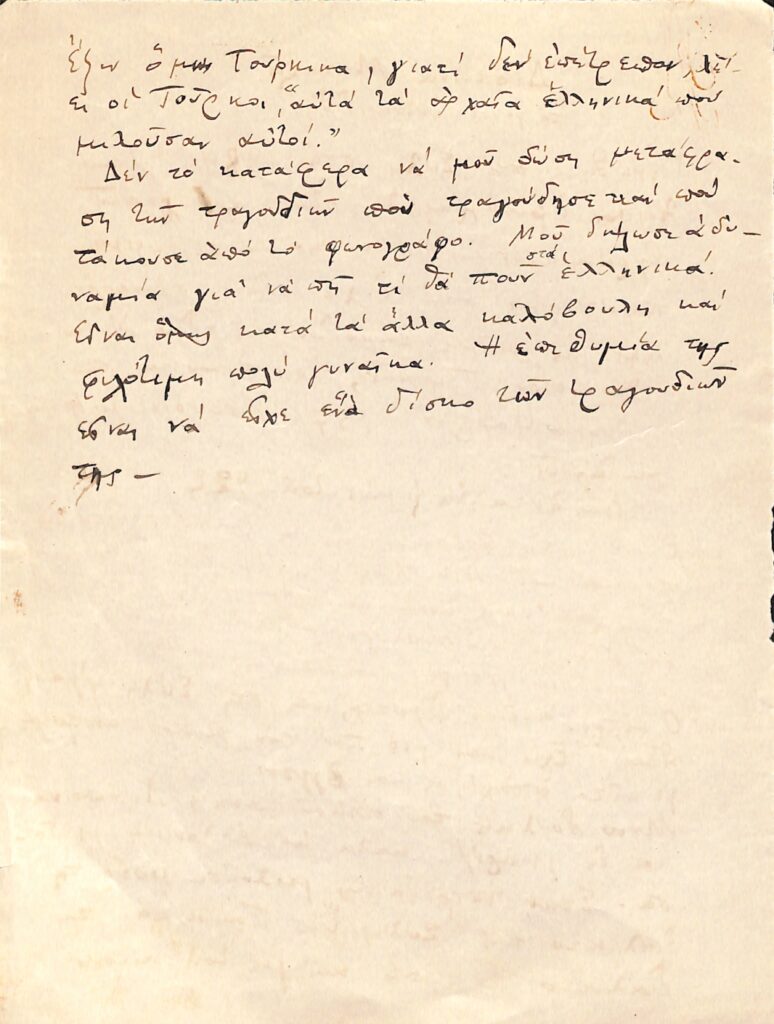 ἔξω ὅμως Τούρκικα, γιατί δέν ἐπέτρεπαν, λέ-
ει οἱ Τοῦρκοι, "αὐτά τά ἀρχαῖα ἑλληνικά πού
μιλοῦσαν αὐτοί."
Δέν τό κατάφερα νά μοῦ δώση μετάφρα-
ση τῶν τραγουδιῶν πού τραγούδησε καί πού
τάκουσε ἀπό τό φωνογράφο. Μοῦ δήλωσε ἀδυ-
ναμία γιά νά πῆ τί θά ποῦν στά ἑλληνικά.
Εἶναι ὅμως κατά τά ἄλλα καλόβουλη καί
φιλότιμη πολύ γυναῖκα. Ἡ ἐπιθυμία της
εἶναι νά εἶχε ἕνα δίσκο τῶν τραγουδιῶν
της –